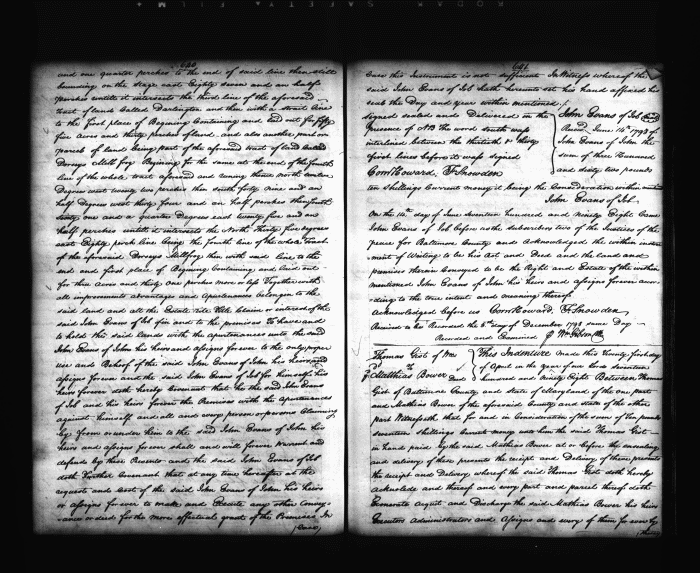 640
and one quarter perches to the end of said line then still
bounding on the stage east Eighty seven and an half
perches untill it intersects the third line of the aforesaid
tract of land Called Darlington and then with a strait line
to the first place of Begining Containing and laid out for fifty
five Acres and thirty perches of land and also another part or
parcel of land being part of the aforesaid tract of land Called
Dorseys Mill frog Begining for the same at the end of the fourth
line of the whole tract aforesaid and runing thence north
Degrees west twenty two perches then south forty nine and an
half Degrees west thirty four and an half perches then south
sixty one and a quarter Degrees east twenty five and an
half perches untill it intersects the North Thirty five degrees
east Eighty perch line being the fourth line of the whole tract
of the aforesaid Dorseys Millfrog then with said line to the
end and first place of Begining Containing and laid out
for three Acres and thirty one perches more or less Together with
all improvements advantages and Apurtenances belonging to the
said land and all the Estate title claim or interest of the
said John Evans of Job for and to the premises To have and
to hold the said Lands with the apurtenances unto the said
John Evans of John his heirs and assigns forever to the only proper
use and Behoof of the said John Evans of John his heirs and
assigns forever and the said John Evans of Job for himself his
heirs forever doth hereby Covenant that he the said John Evans
of Job and his heirs forever the Premises with the Apurtenances
against himself and all and every person or persons Claiming
by from or under him to the said John Evans of John his
heirs and assigns forever shall and will forever Warrant and
defend by these Presents and the said John Evans of Job
doth Further Covenant that at any time hereafter at the
request and Cost of the said John Evans of John his heirs
or assigns forever to make and Execute any other Convey-
ance or deed for the more effectual grant of the Premises In
(Case)
641
Case this Instrument is not sufficient In Witness whereof the
said John Evans of Job hath hereunto set his hand affixed his
seal the Day and year within mentioned
signed sealed and Delivered in the
presence of NB the word south was
interlined between the thirtieth & thirty
first lines before it was signed
Corn Howard, F Snowden
John Evans of Job (Seal)
Recd. June 14th 1798 of
John Evans of John the
sum of three Hundred
and sixty two pounds
ten shillings Current money it being the Consideration within
John Evans of Job
On the 14th day of June seventeen hundred and Ninety Eight Came
John Evans of Job before us the subscribers two of the Justices of the
peace for Baltimore County and Acknowledged the within instru-
ment of Writing to be his Act and Deed and the land and
premises therein Conveyed to be the Right and Estate of the within
mentioned John Evans of John his heirs and assigns forever accor-
ding to the true intent and meaning thereof
Acknowledged before us Corn Howard, F Snowden
Received to be Recorded the 5th day of December 1798 same Day
Recorded and Examined P Wm Gibson Clk
Thomas Gist of Wm
To
Matthias Bower
Deed
This Indenture made this Twenty first day
of April in the year of our Lord seventeen
hundred and ninety Eight Between Thomas
Gist of Baltimore County and state of Maryland of the one part
and Mathias Bower of the aforesaid County and state of the other
part Witnesseth that for and in Consideration of the sum of Ten pounds
seventeen shillings Current money unto him the said Thomas Gist
in hand paid by the said Mathias Bower at or before the ensealing
and delivery of these presents the receipt and Delivery of these presents
the receipt and Delivery whereof the said Thomas Gist doth hereby
Acknolede and thereof and every part and parcel thereof doth
Exonerate Acquit and Discharge the said Mathias Bower his heirs
Executors Administrators and Assigns and every of them for ever by